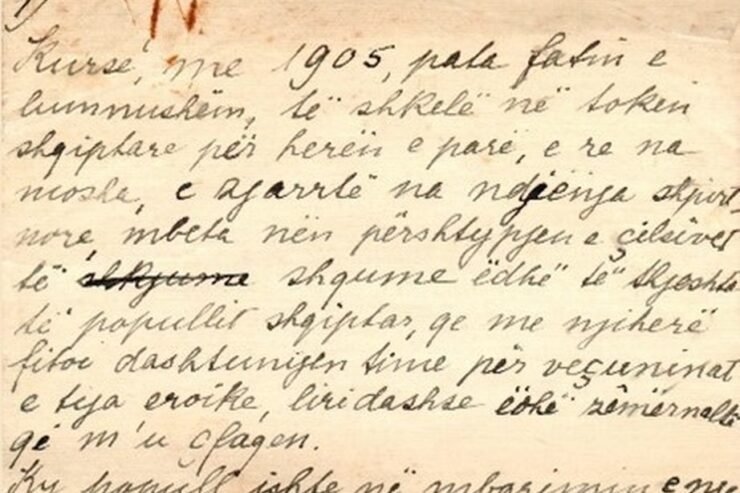 Kursé, me 1905, pata fatin e
lumnushëm, të shkelë në tokën
shqiptare për herën e parë, e re na
mosha, e zgarrtë na ndjënja shpirt-
nore, mbeta nën përshtypjen e çilsivet
të shkjume shqume ëdhë të thjeshta
të popullit shqiptar, qe me njiherë
fitoi dashtunijen time për veçuninat
e tija eroike, liridashse ëdhë zëmërnaltë
që m'u çfaqen.
Ky popull ishte në mbarimin e